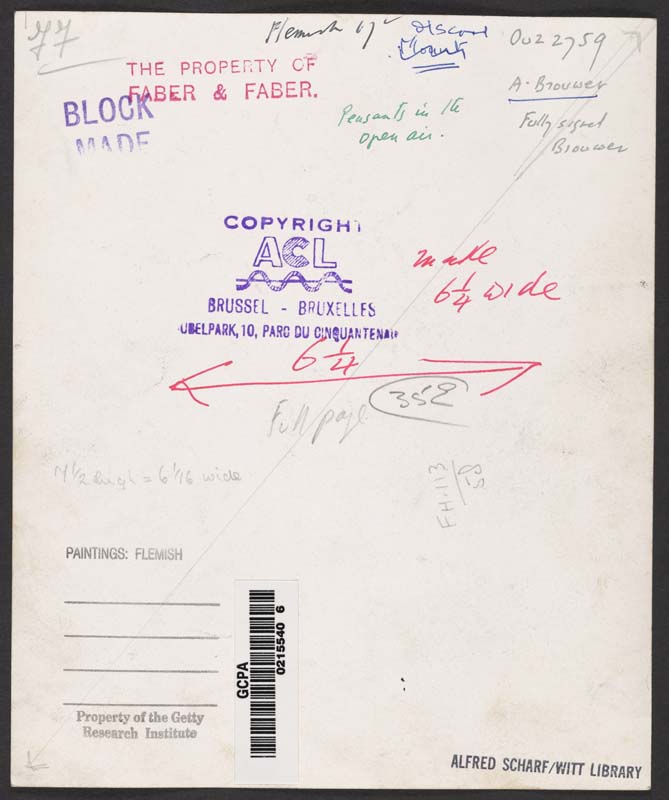 77
Flemish 17c
Discard
0022759
THE PROPERTY OF
FABER & FABER.
BLOCK
MADE
A. Brouwer
Peasants in the
open air.
Fully signed
Brouwer
COPYRIGHT
ACL
BRUSSEL - BRUXELLES
UBELPARK, 10, PARC DU CINQUANTENAI
make
6 1/4 wide
6 1/4
352
Full page
7 1/2 high = 6 1/16 wide
FH.113
58
PAINTINGS: FLEMISH
GCPA
0215540 6
Property of the Getty
Research Institute
ALFRED SCHARF/WITT LIBRARY